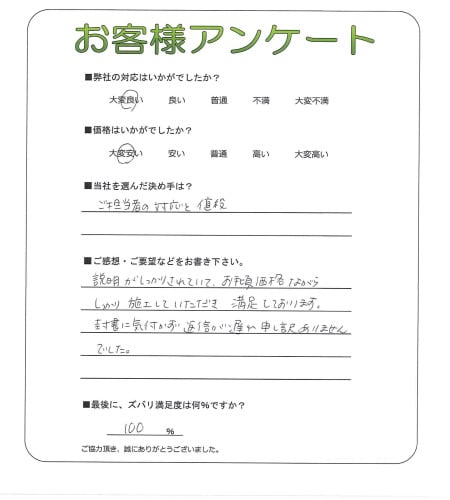 お客様アンケート
■弊社の対応はいかがでしたか?
大変良い 良い 普通 不満 大変不満
■価格はいかがでしたか?
大変安い 安い 普通 高い 大変高い
■当社を選んだ決め手は?
ご担当者の対応と値段
■ご感想・ご要望などをお書き下さい。
説明がしっかりされていて、お手頃価格ながら
しっかり施工していただき満足しております。
封書に気付かず返信が遅れ申し訳ありません
でした。
■最後に、ズバリ満足度は何%ですか?
100 %
ご協力頂き、誠にありがとうございました。